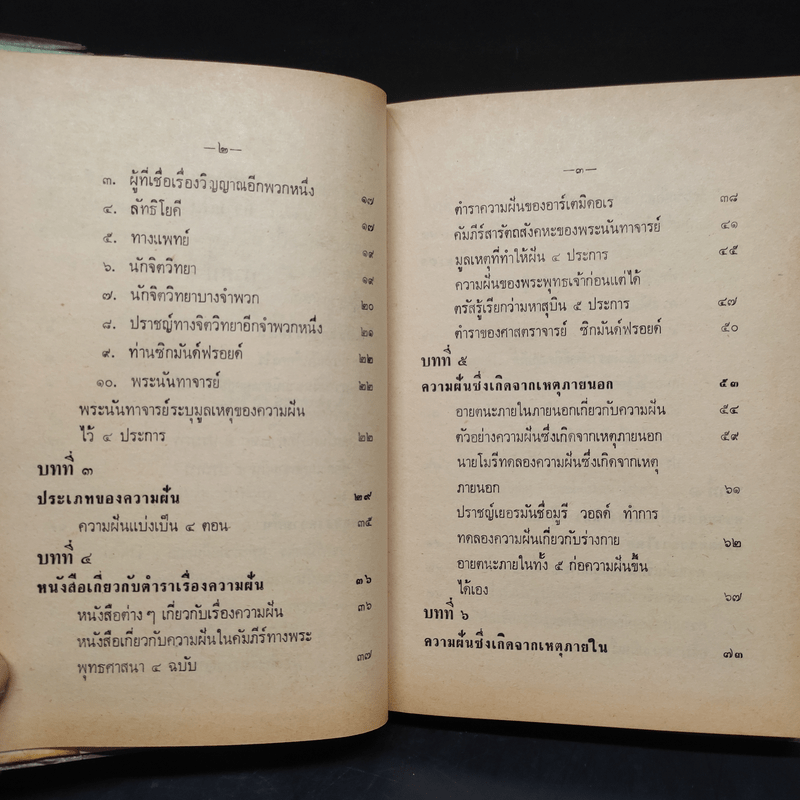 —๒—
๓. ผู้ที่เชื่อเรื่องวิญญาณอีกพวกหนึ่ง ๑๗
๔. ลัทธิโยคี ๑๗
๕. ทางแพทย์ ๑๙
๖. นักจิตวิทยา ๑๙
๗. นักจิตวิทยาบางจำพวก ๒๐
๘. ปราชญ์ทางจิตวิทยาอีกจำพวกหนึ่ง ๒๑
๙. ท่านซิกมันด์ฟรอยด์ ๒๒
๑๐. พระนันทาจารย์ ๒๒
พระนันทาจารย์ระบุมูลเหตุของความฝัน
ไว้ ๔ ประการ ๒๒
บทที่ ๓
ประเภทของความฝัน ๒๙
ความฝันแบ่งเป็น ๔ ตอน ๓๕
บทที่ ๔
หนังสือเกี่ยวกับตำราเรื่องความฝัน ๓๖
หนังสือต่าง ๆ เกี่ยวกับเรื่องความฝัน ๓๖
หนังสือเกี่ยวกับความฝันในคัมภีร์ทางพระ
พุทธศาสนา ๔ ฉบับ ๓๗
—๓—
ตำราความฝันของอาร์เตมิดอเร ๓๘
คัมภีร์สารัตถสังคหะของพระนันทาจารย์ ๔๑
มูลเหตุที่ทำให้ฝัน ๔ ประการ ๔๕
ความฝันของพระพุทธเจ้าก่อนแต่ได้
ตรัสรู้เรียกว่ามหาสุบิน ๕ ประการ ๔๗
ตำราของศาสตราจารย์ ซิกมันด์ฟรอยด์ ๕๐
บทที่ ๕
ความฝันซึ่งเกิดจากเหตุภายนอก ๕๓
อายตนะภายในภายนอกเกี่ยวกับความฝัน ๕๔
ตัวอย่างความฝันซึ่งเกิดจากเหตุภายนอก ๕๙
นายโมรีทดลองความฝันซึ่งเกิดจากเหตุ
ภายนอก ๖๑
ปราชญ์เยอรมันชื่อมูรี วอลด์ ทำการ
ทดลองความฝันเกี่ยวกับร่างกาย ๖๒
อายตนะภายในทั้ง ๕ ก่อความฝันขึ้น
ได้เอง ๖๗
บทที่ ๖
ความฝันซึ่งเกิดจากเหตุภายใน ๗๓